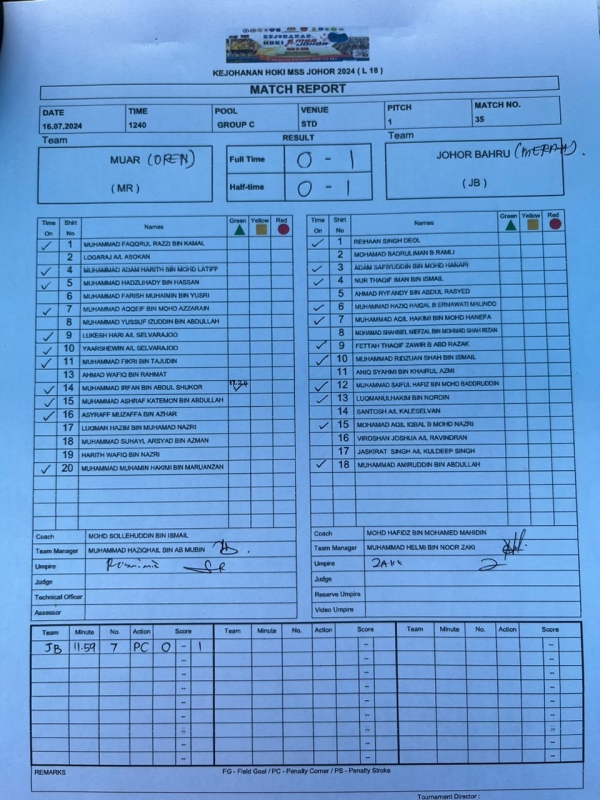 KEJOHANAN
HOKI MSS JOHOR
KEJOHANAN HOKI MSS JOHOR 2024 ( L 18 )
MATCH REPORT
DATE TIME POOL VENUE PITCH MATCH NO.
16.07.2024 1240 GROUP C STD 1 35
Team RESULT Team
MUAR (OREN) Full Time 0 - 1 JOHOR BAHRU (MERAH).
( MR ) Half-time 0 - 1 ( JB )
Time On Shirt No Names Green Yellow Red
✓ 1 MUHAMMAD FAQQRUL RAZZI BIN KAMAL
2 LOGARAJ A/L ASOKAN
✓ 4 MUHAMMAD ADAM HARITH BIN MOHD LATIFF
✓ 5 MUHAMMAD HADZLIHADY BIN HASSAN
6 MUHAMMAD FARISH MUHAIMIN BIN YUSRI
✓ 7 MUHAMMAD AQQEIF BIN MOHD AZZARAIN
8 MUHAMMAD YUSSUF IZUDDIN BIN ABDULLAH
✓ 9 LUKESH HARI A/L SELVARAJOO
✓ 10 YAARSHEWIN A/L SELVARAJOO
✓ 11 MUHAMMAD FIKRI BIN TAJUDIN
13 AHMAD WAFIQ BIN RAHMAT
✓ 14 MUHAMMAD IRFAN BIN ABDUL SHUKOR ✓
✓ 15 MUHAMMAD ASHRAF KATEMON BIN ABDULLAH
✓ 16 ASYRAFF MUZAFFA BIN AZHAR
17 LUQMAN HAZIM BIN MUHAMAD NAZRI
18 MUHAMMAD SUHAYL ARSYAD BIN AZMAN
19 HARITH WAFIQ BIN NAZRI
✓ 20 MUHAMMAD MUHAMIN HAKIMI BIN MARUANZAN
Coach MOHD SOLLEHUDDIN BIN ISMAIL
Team Manager MUHAMMAD HAZIQHAIL BIN AB MUBIN
Umpire
Judge
Technical Officer
Assessor
Time On Shirt No Names Green Yellow Red
✓ 1 REIHAAN SINGH DEOL
2 MOHAMAD BADRULIMAN B RAMLI
✓ 3 ADAM SAFIYUDDIN BIN MOHD HANAPI
✓ 4 NUR THAQIF IMAN BIN ISMAIL
5 AHMAD RYFANDY BIN ABDUL RASYED
✓ 6 MUHAMMAD HAZIQ HAIQAL B ERMAWATI MALINDO
✓ 7 MUHAMMAD AQIL HAKIMI BIN MOHD HANEFA
8 MOHAMAD SHAHBIEL MIEFZAL BIN MOHMAD SHAH RIZAN
✓ 9 FETTAH THAQIF ZAWIR B ABD RAZAK
✓ 10 MUHAMMAD RIDZUAN SHAH BIN ISMAIL
11 ANIQ SYAHMI BIN KHAIRUL AZMI
✓ 12 MUHAMMAD SAIFUL HAFIZ BIN MOHD BADDRUDDIN
✓ 13 LUQMANULHAKIM BIN NORDIN
14 SANTOSH A/L KALESELVAN
✓ 15 MOHAMAD AQIL IQBAL B MOHD NAZRI
16 VIROSHAN JOSHUA A/L RAVINDRAN
17 JASKIRAT SINGH A/L KULDEEP SINGH
✓ 18 MUHAMMAD AMIRUDDIN BIN ABDULLAH
Coach MOHD HAFIDZ BIN MOHAMED MAHIDIN
Team Manager MUHAMMAD HELMI BIN NOOR ZAKI
Umpire
Judge
Reserve Umpire
Video Umpire
Team Minute No. Action Score Team Minute No. Action Score Team Minute No. Action Score
JB 11.59 7 PC 0 - 1
REMARKS FG - Field Goal / PC - Penalty Corner / PS - Penalty Stroke
Tournament Director :